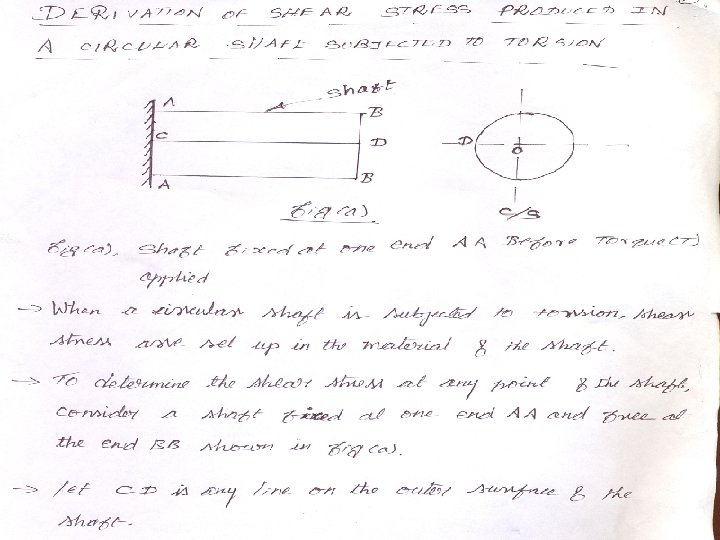 DERIVATION OF SHEAR STRESS PRODUCED IN
A CIRCULAR SHAFT SUBJECTED TO TORSION
shaft
A
B
C
D
D
O
A
B
fig(a)
c/s
fig(a). Shaft fixed at one end AA Before Torque(T)
applied
→ When a circular shaft is subjected to torsion, shear
stress are set up in the material of the shaft.
→ To determine the shear stress at any point of the shaft,
consider a shaft fixed at one end AA and free at
the end BB shown in fig(a).
→ let CD is any line on the outer surface of the
shaft.